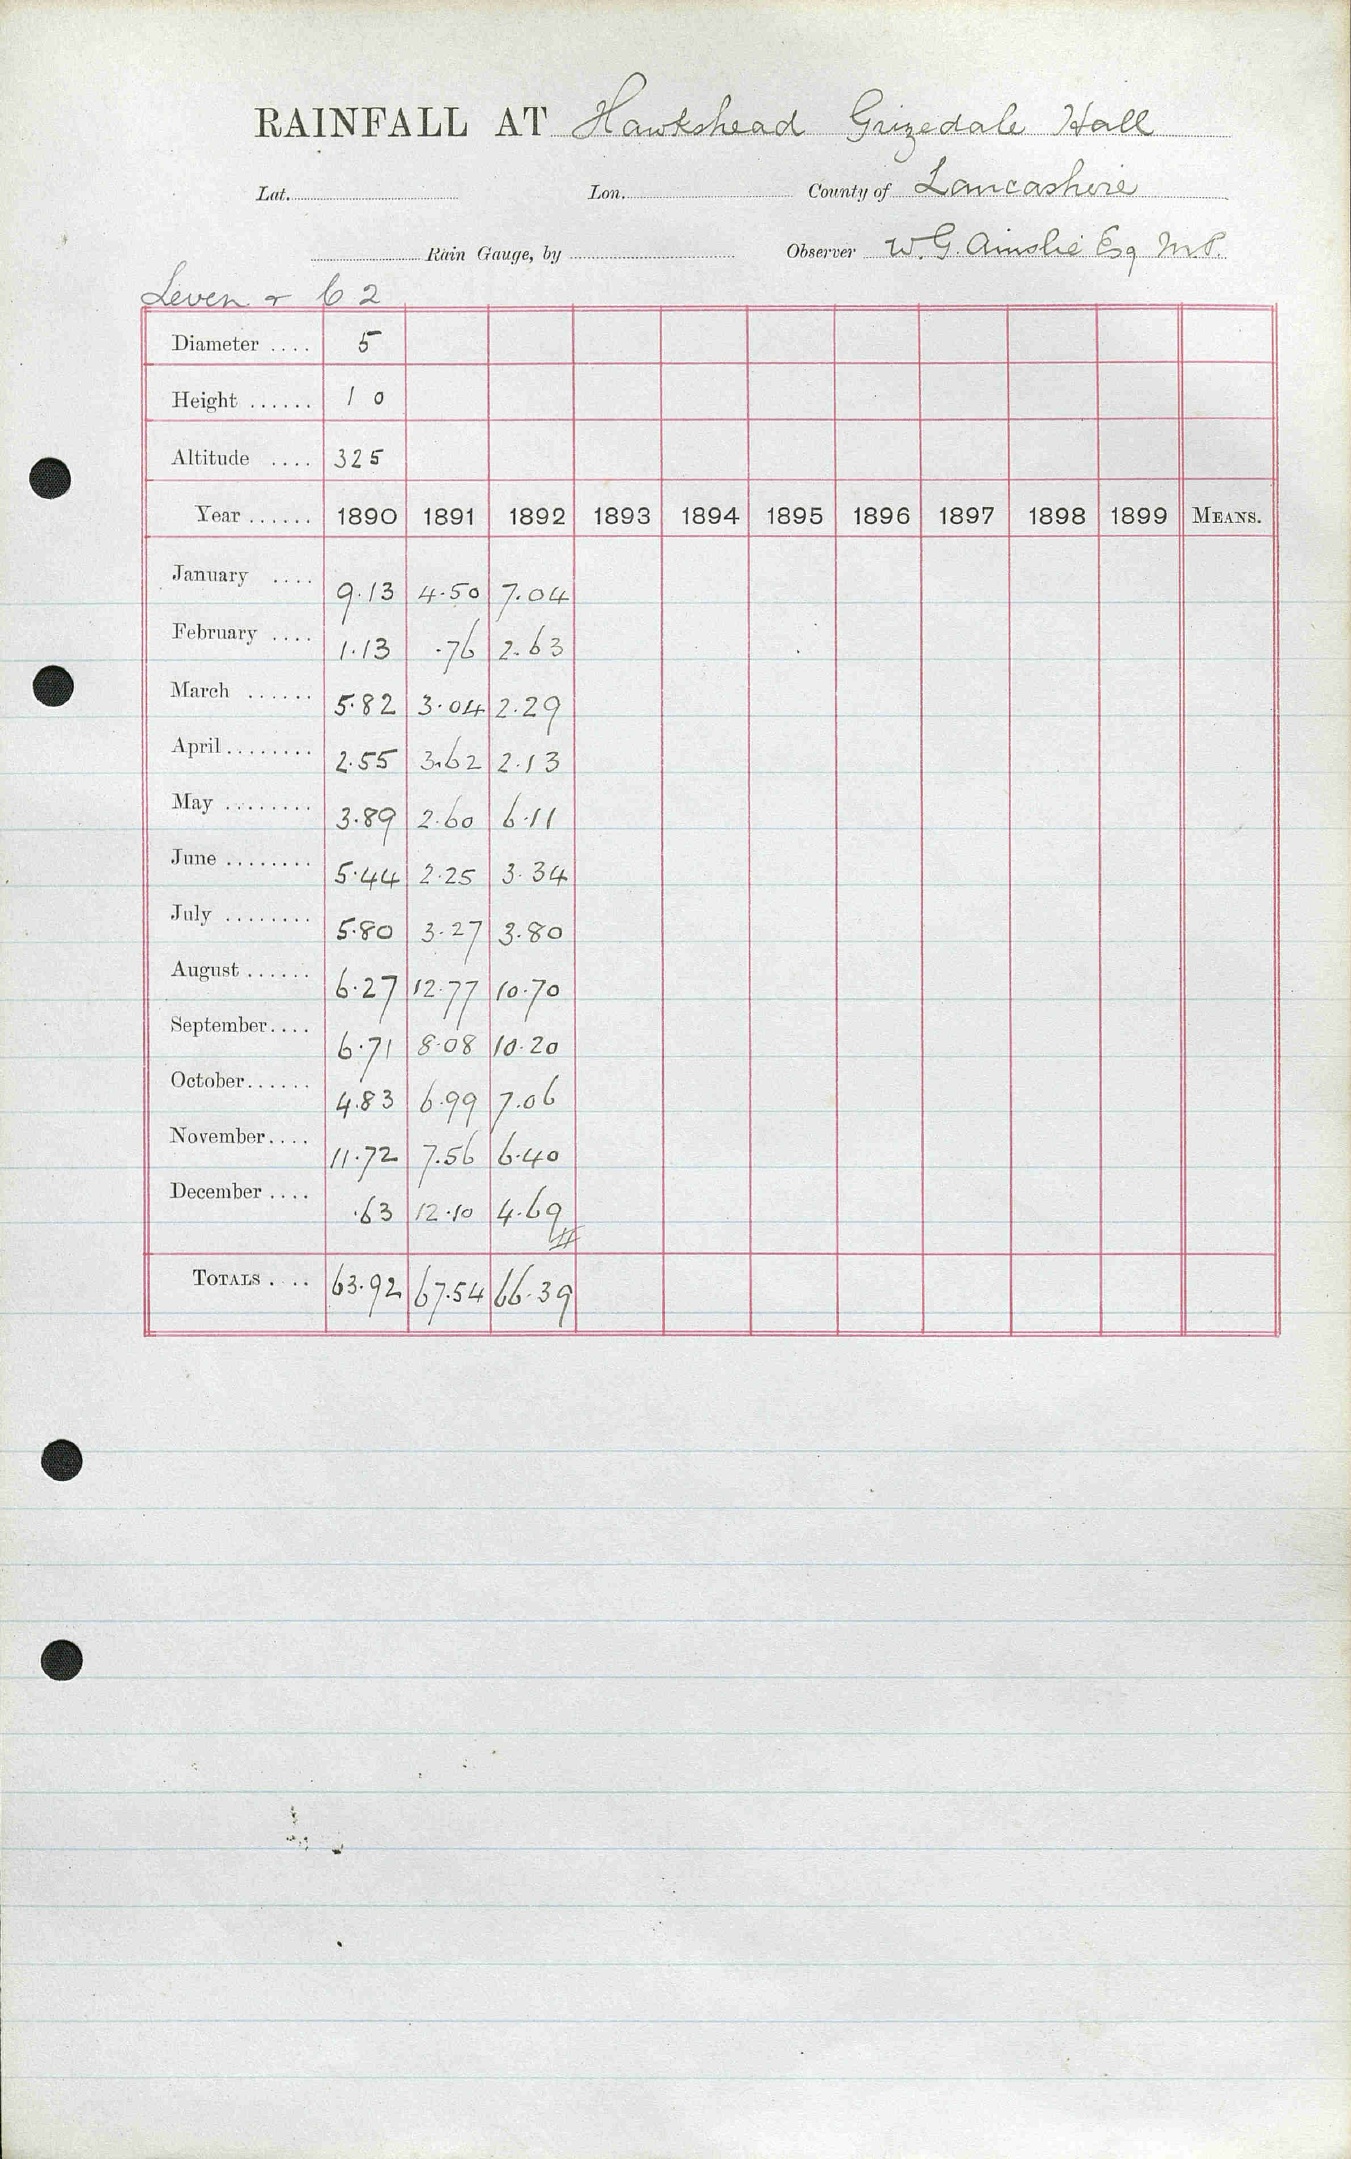 RAINFALL AT Hawkshead Grizedale Hall
Lat. Lon. County of Lancashire
Rain Gauge, by Observer W. G. Ainslie Esq M.P.
Leven & C 2
Diameter .... 5
Height ...... 1 0
Altitude .... 325
Year ...... 1890 1891 1892 1893 1894 1895 1896 1897 1898 1899 MEANS.
January .... 9.13 4.50 7.04
February .... 1.13 .76 2.63
March ...... 5.82 3.04 2.29
April ........ 2.55 3.62 2.13
May ........ 3.89 2.60 6.11
June ........ 5.44 2.25 3.34
July ........ 5.80 3.27 3.80
August ...... 6.27 12.77 10.70
September.... 6.71 8.08 10.20
October...... 4.83 6.99 7.06
November.... 11.72 7.56 6.40
December .... .63 12.10 4.69
TOTALS .... 63.92 67.54 66.39